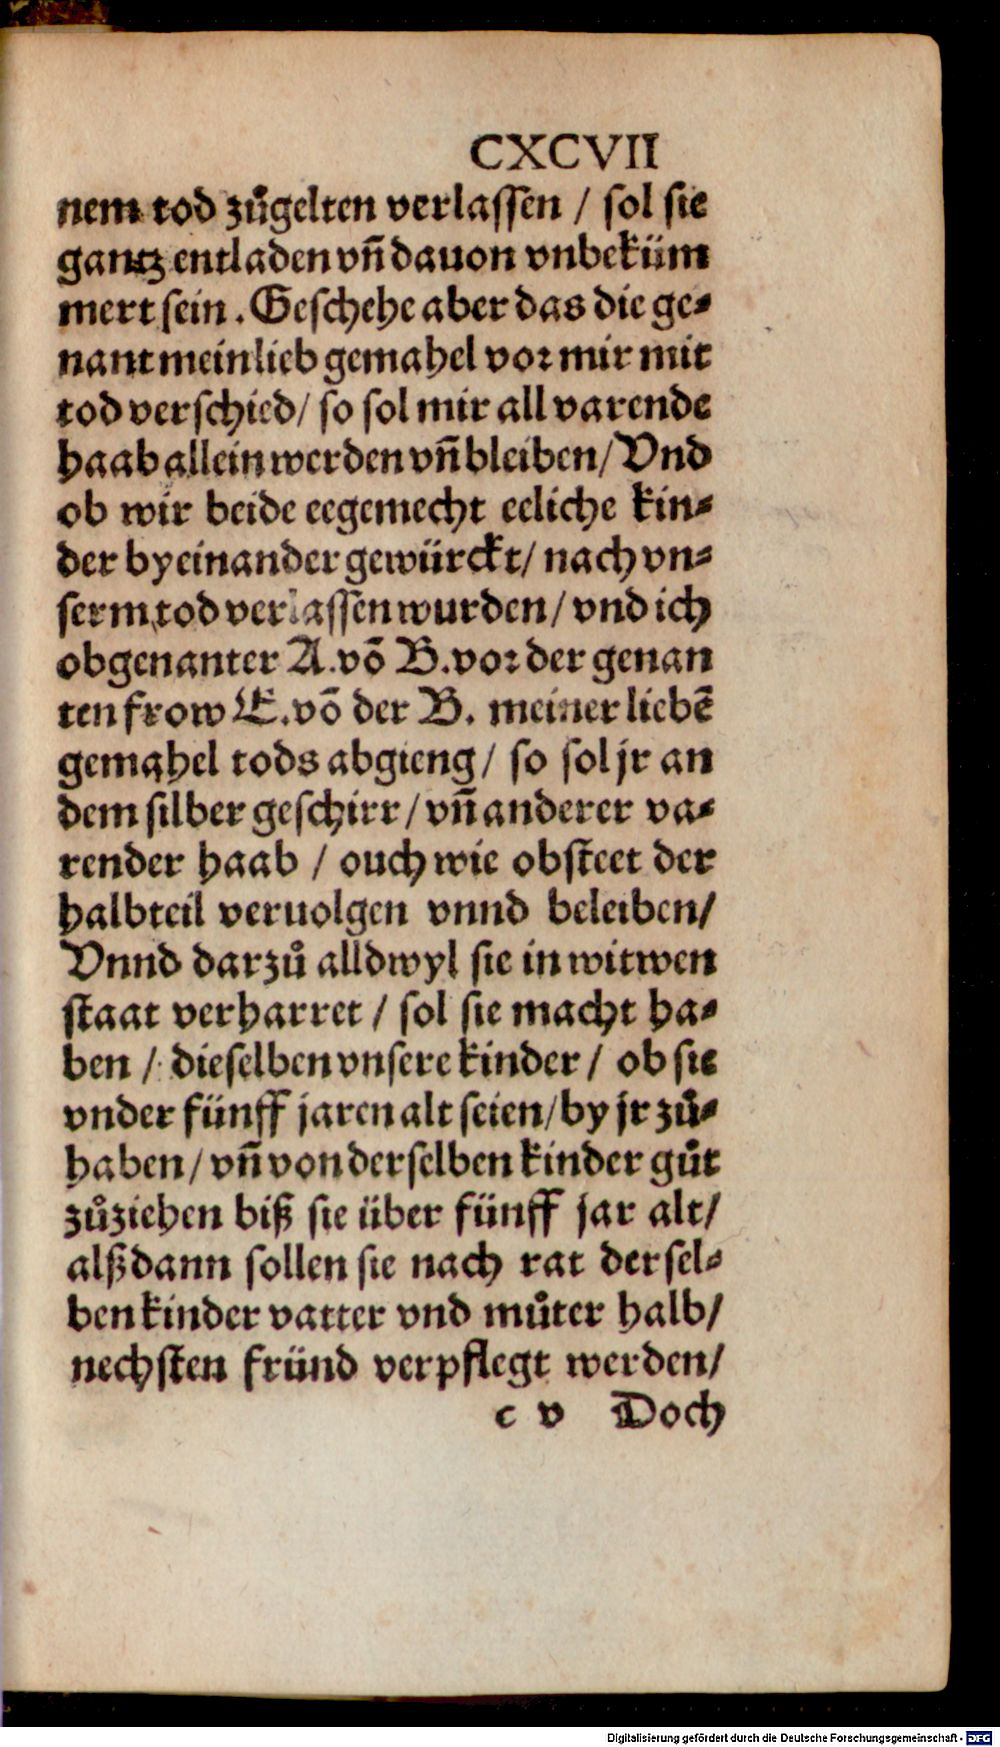 CXCVII
nem tod zůgelten verlassen / sol sie
gantz entladen vn̄ dauon vnbeküm
mert sein. Geschehe aber das die ge⸗
nant mein lieb gemahel vor mir mit
tod verschied / so sol mir all varende
haab allein werden vn̄ bleiben / Vnd
ob wir beide eegemecht eeliche kin⸗
der by einander gewürckt / nach vn⸗
serm tod verlassen wurden / vnd ich
obgenanter A. vō B. vor der genan
ten frow E. vō der B. meiner liebē
gemahel tods abgieng / so sol jr an
dem silber geschirr / vn̄ anderer va⸗
render haab / ouch wie obsteet der
halbteil veruolgen vnnd beleiben /
Vnnd darzů alldwyl sie in witwen
staat verharret / sol sie macht ha⸗
ben / dieselben vnsere kinder / ob sie
vnder fünff jaren alt seien / by jr zů⸗
haben / vn̄ von derselben kinder gůt
zůziehen biß sie über fünff jar alt /
alßdann sollen sie nach rat der sel⸗
ben kinder vatter vnd můter halb /
nechsten fründ verpflegt werden /
c v Doch
Digitalisierung gefördert durch die Deutsche Forschungsgemeinschaft - DFG